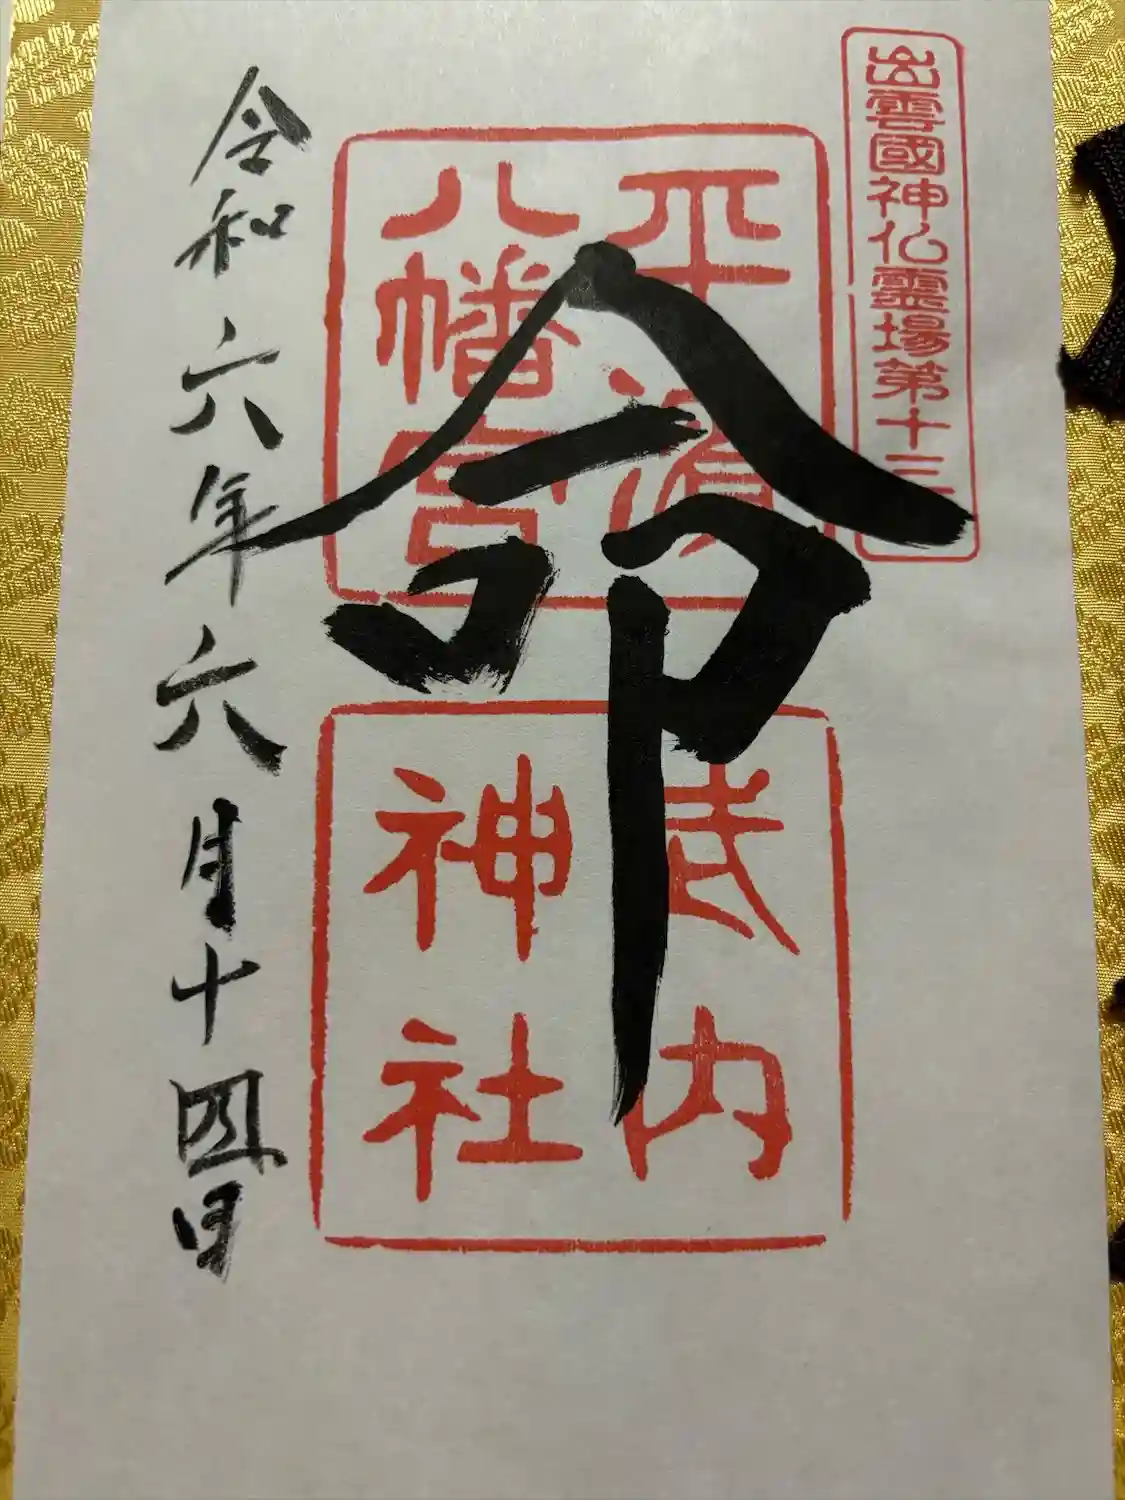 出雲國神仏霊場第十三
平濱
八幡宮
命
武内
神社
令和六年六月十四日